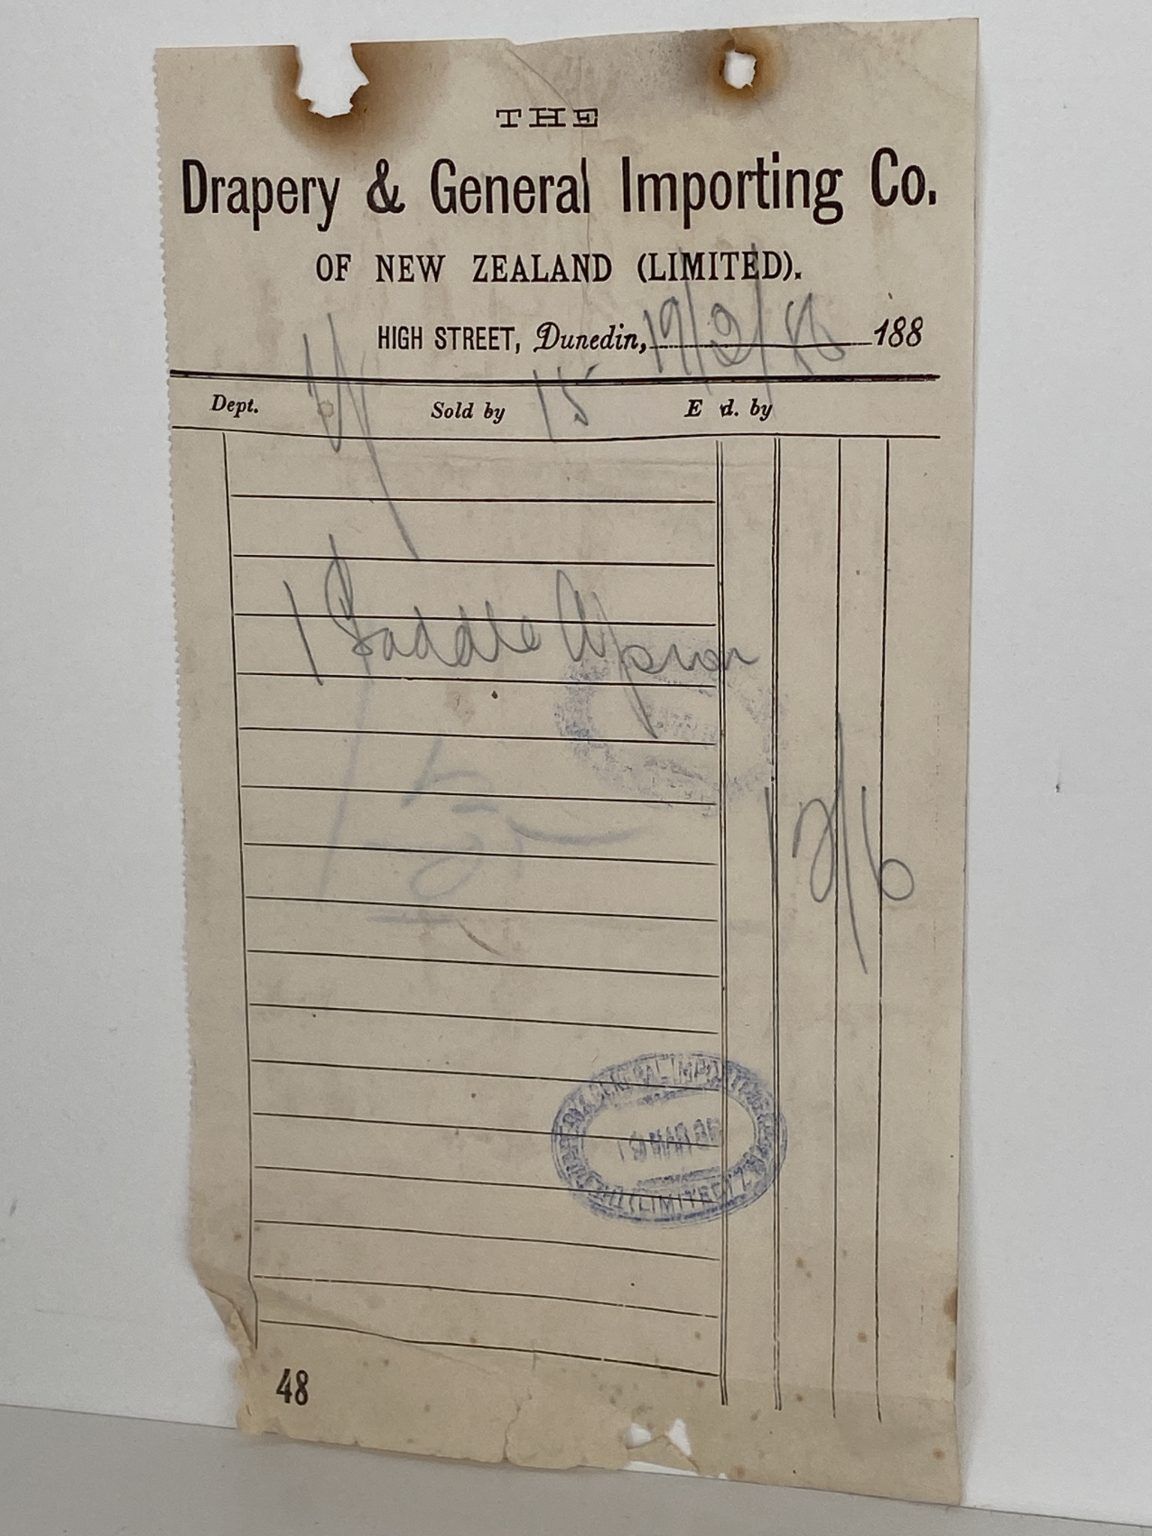 THE
Drapery & General Importing Co.
OF NEW ZEALAND (LIMITED).
HIGH STREET, Dunedin, 19/2/86 188
Dept. Sold by 15 E d. by
1 Saddle Apron
12/6
GENERAL IMPORTING
(LIMITED)
48